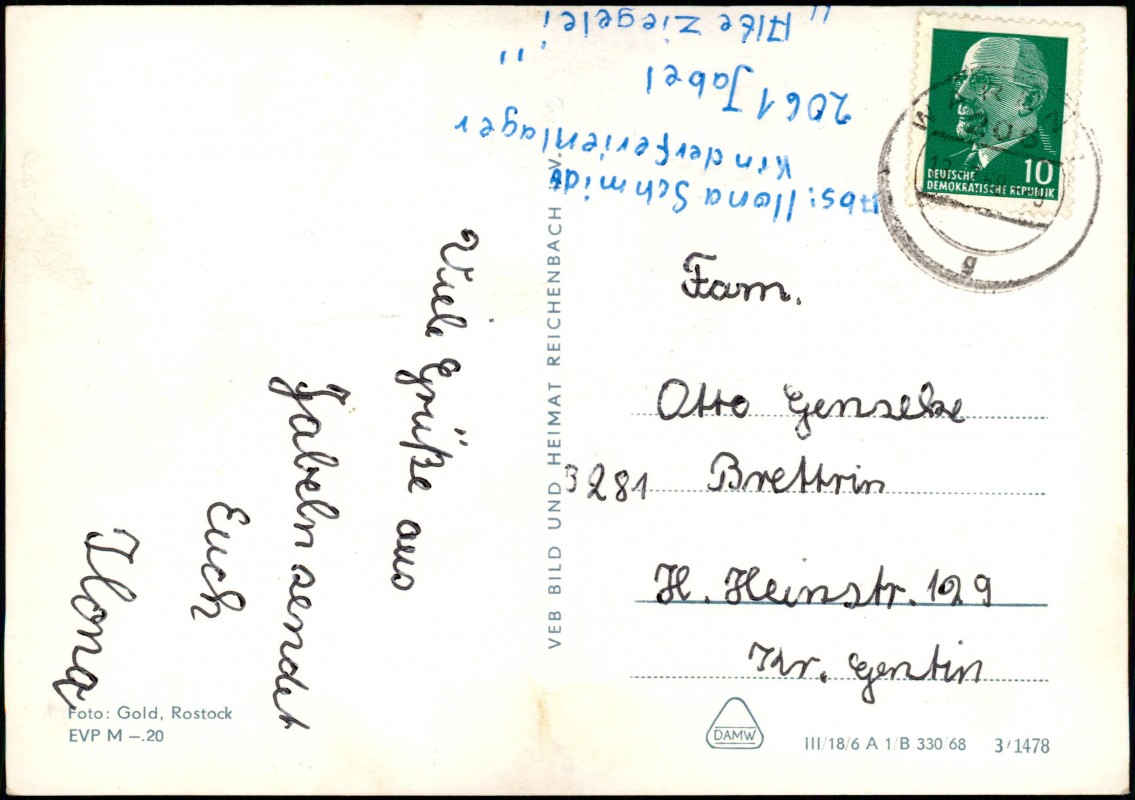 Viele Grüße aus
Jabeln sendet
Euch
Ilona
Foto: Gold, Rostock
EVP M –.20
VEB BILD UND HEIMAT REICHENBACH i. V.
Abs: Ilona Schmidt
Kinderferienlager
2061 Jabel
"Alte Ziegelei"
WAREN
206
g
DEUTSCHE 10
DEMOKRATISCHE REPUBLIK
Fam.
Otto Genseke
3281 Brettin
H. Heinstr. 129
Kr. Gentin
DAMW
III/18/6 A 1/B 330/68 3/1478